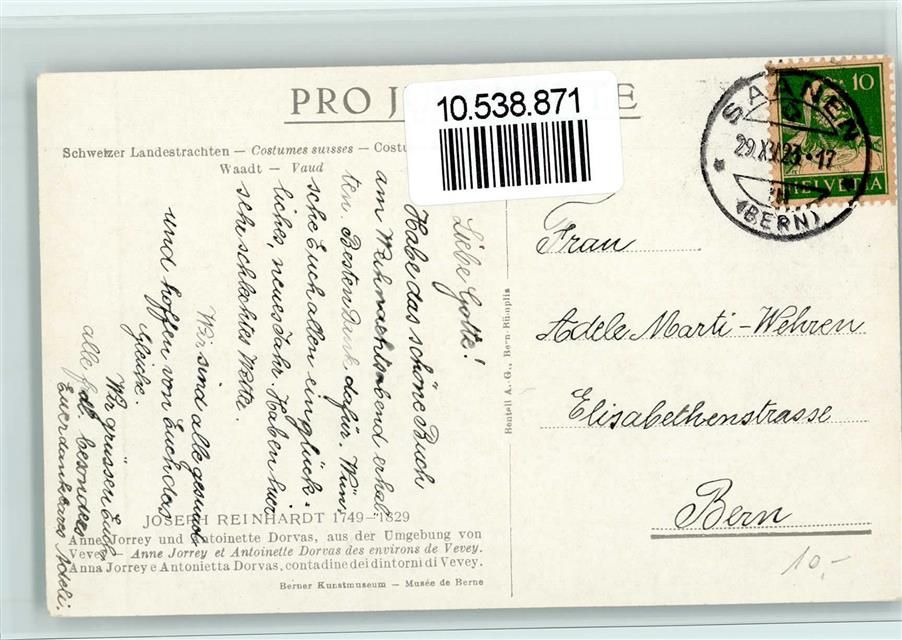 PRO J
10.538.871
Schweizer Landestrachten — Costumes suisses — Costu
Waadt — Vaud
SAANEN
29.XII.23·17
(BERN)
10
HELVETIA
Liebe Gotte!
Habe das schöne Buch
am Weihnachtsabend erhal
ten. Besten Dank dafür. Wün
sche Euch allen ein glück-
liches, neues Jahr. Haben hier
sehr schlechtes Wetter.
Wir sind alle gesund
und hoffen von Euch das
Gleiche.
Wir grüssen Euch
alle frdl. besonders
Euer dankbares Adeli.
Frau
Adele Marti-Wehren
Elisabethenstrasse
Bern
10.-
Benteli A.-G., Bern-Bümpliz
JOSEPH REINHARDT 1749–1829
Anne Jorrey und Antoinette Dorvas, aus der Umgebung von
Vevey — Anne Jorrey et Antoinette Dorvas des environs de Vevey.
Anna Jorrey e Antonietta Dorvas, contadine dei dintorni di Vevey.
Berner Kunstmuseum — Musée de Berne